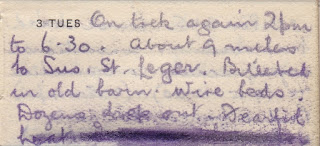 3 TUES On trek again 2pm
to 6.30. About 9 miles
to Sus. St. Leger. Billeted
in old barn. Wire beds.
Dozens drop out. Fearful
heat